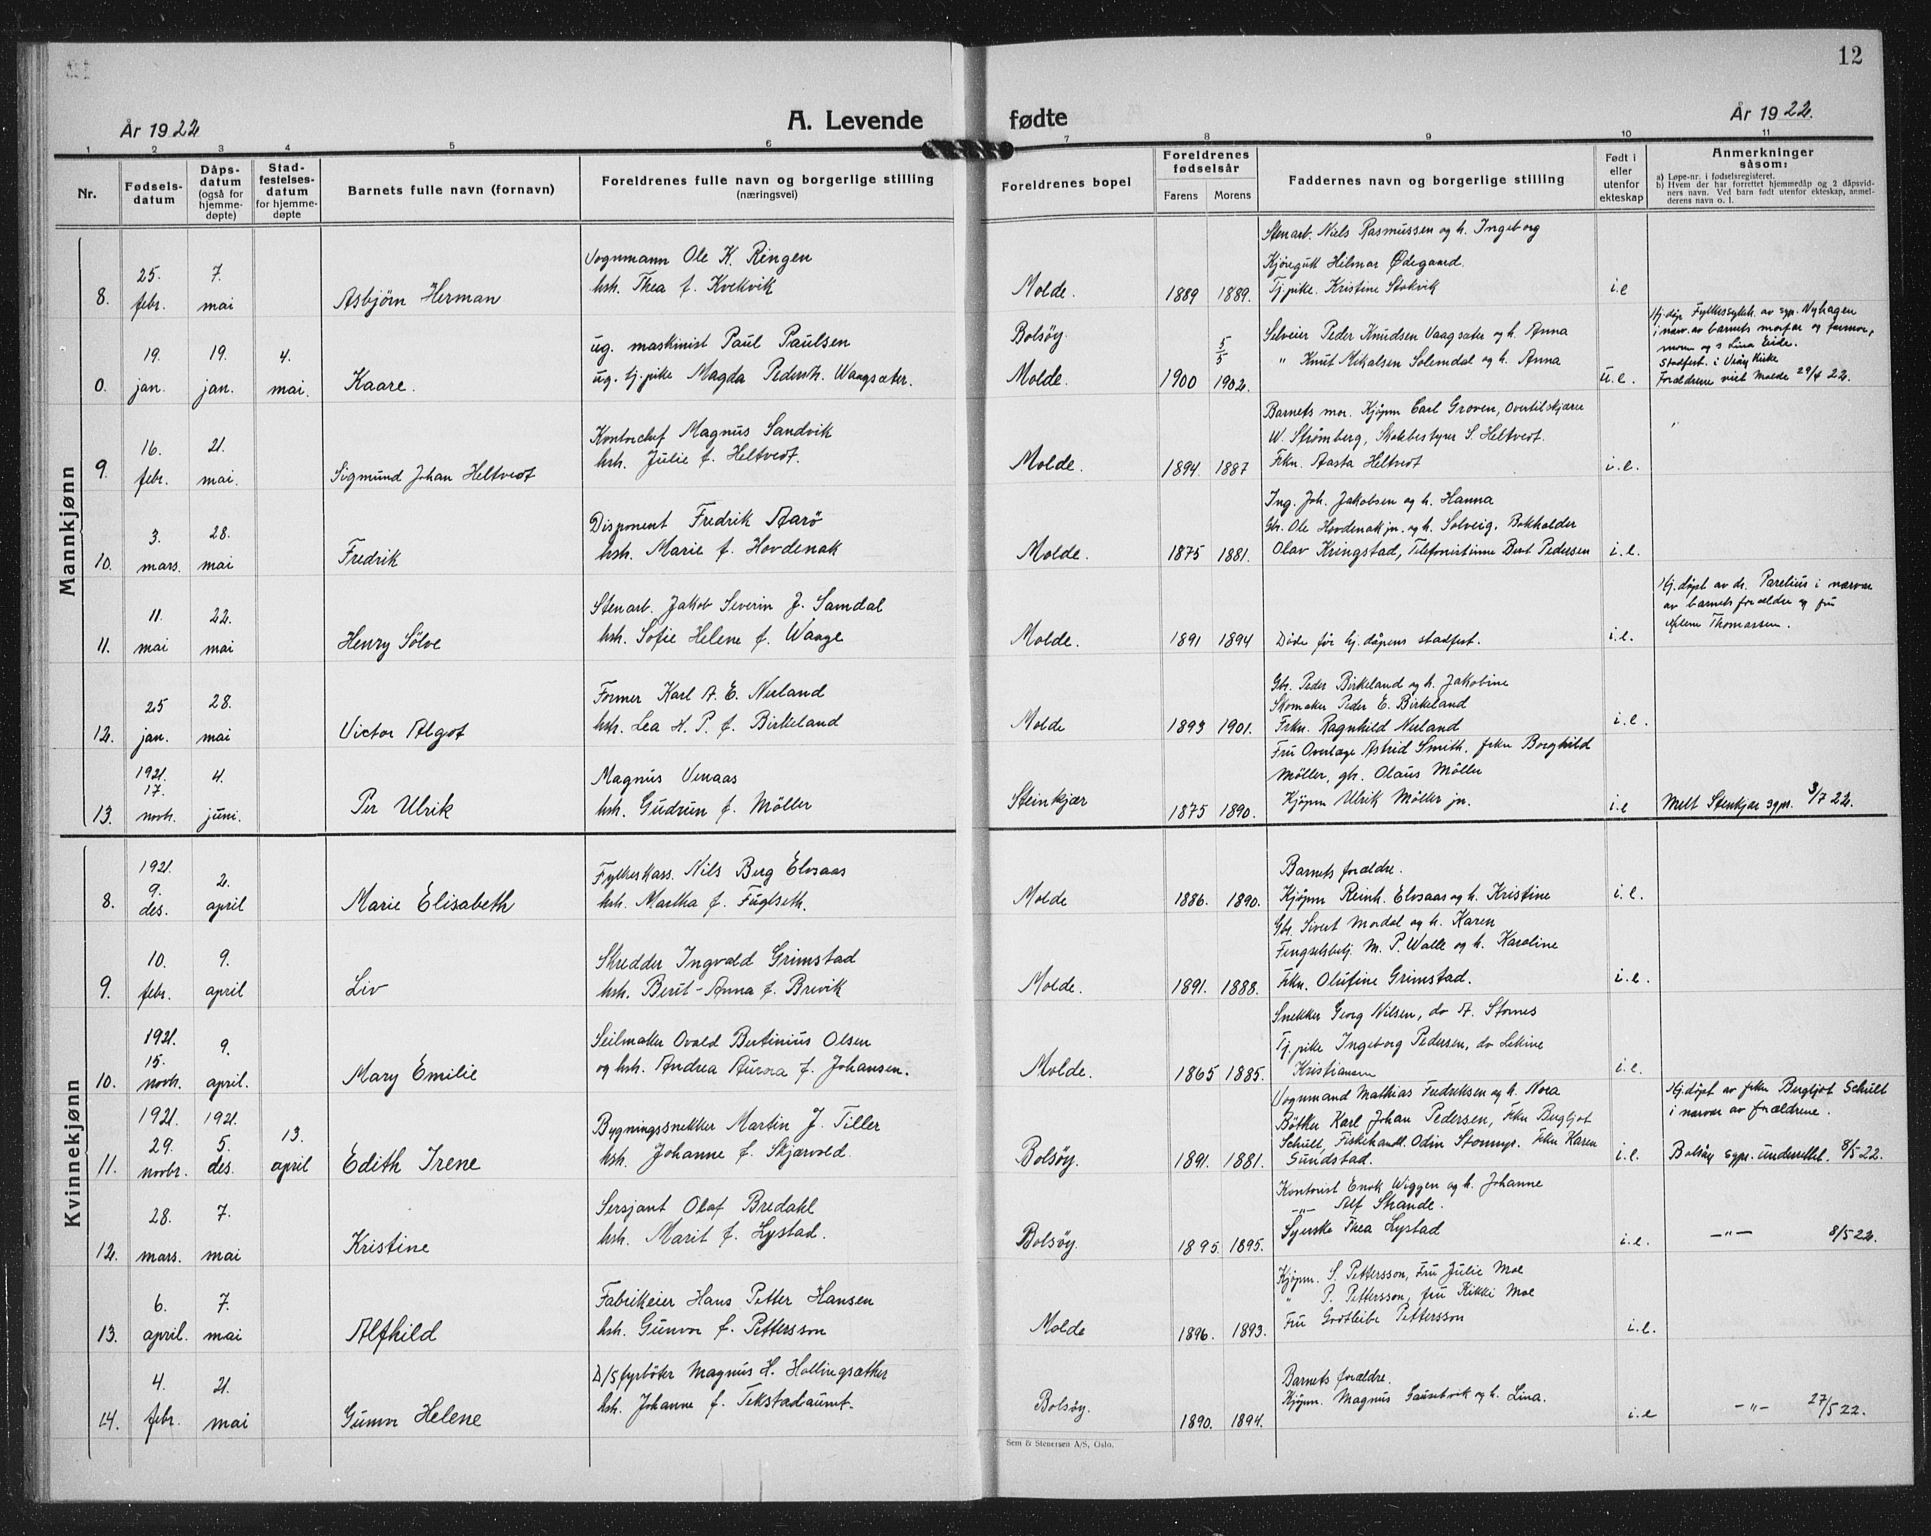 12
År 1922
A. Levende fødte
År 1922.
1 2 3 4 5 6 7 8 9 10 11
Nr.
Fødselsdatum
Dåpsdatum (også for hjemmedøpte)
Stadfestelsesdatum for hjemmedøpte
Barnets fulle navn (fornavn)
Foreldrenes fulle navn og borgerlige stilling
(næringsvei)
Foreldrenes bopel
Foreldrenes fødselsår
Farens Morens
Faddernes navn og borgerlige stilling
Født i eller utenfor ekteskap
Anmerkninger såsom:
a) Løpe-nr. i fødselsregisteret.
b) Hvem der har forrettet hjemmedåp og 2 dåpsvidners navn. Ved barn født utenfor ekteskap, anmelderens navn o. l.
Mannkjønn
8. 25. febr. 7. mai Asbjørn Herman
Vognmann Ole K. Ringen
hsh. Thea f. Kvekvik
Molde. 1889 1889.
Stenarb. Niels Rasmussen og h. Ingeborg
Kjøregutt Hilmar Ødegaard.
Tj.pike. Kristine Stokvik
i.e
0. 19. jan. 19. jan. 4. mai. Kaare.
ug. maskinist Paul Paulsen
ug. tj.pike Magda Pedersh. Waagsæter.
Bolsøy
Molde. 1900 5/5 1902.
Selveier Peder Knudsen Vaagsæter og h. Anna
" Knut Mikalsen Solemdal og h. Anna
u.e.
Hj.døp Fylkessykh. av syp. Nyhagen
i nærv. av barnets morfar og farmor,
mor og s Lina Eide.
Stadfest. i Veøy Kirke
Forældrene viet Molde 29/4 22.
9. 16. febr. 21. mai. Sigmund Johan Heltvedt
Kontorchef Magnus Sandvik
hsh. Julie f. Heltvedt.
Molde. 1894. 1887
Barnets mor. Kjøpm Carl Groven, Overtilskjærer
W. Strømberg, Skolebestyrer S. Heltvedt.
Frkn. Aasta Heltvedt
i.e.
10. 3. mars. 28. mai Fredrik
Disponent Fredrik Aarø
hsh. Marie f. Hovdenak
Molde. 1875 1881.
Ing. Joh. Jakobsen og h. Hanna
Gb. Ole Hovdenak jn. og h. Solveig. Bokholder
Olav Kringstad, Telefonistinne Berit Pedersen
i.e.
11. 11. mai 22. mai Henry Sölve
Stenarb. Jakob Severin J. Samdal
hsh. Sofie Helene f. Waage
Molde. 1891 1894
Døde før hj.dåpens stadfest.
i.e.
Hj.døpt av dr. Parelius i nærvær
av barnets forældre og fru
Thomassen.
12. 25 jan. 28. mai Victor Algot
Former Karl A. E. Neiland
hsh. Lea H. P. f. Birkeland
Molde 1893 1901.
Gb. Peder Birkeland og h. Jakobine
Skomaker Peder E. Birkeland
Frkn. Ragnhild Neiland
i.e.
13. 1921. 17. novb. 4. juni. Per Ulrik
Magnus Venaas
hsh. Gudrun f. Möller
Steinkjær 1875 1890.
Fru Overlæge Astrid Smith. frkn Borghild
Möller, gh. Olaus Möller
Kjøpm Ulrik Möller jn.
i.e
Melt Stenkjær sgpr. 3/7 22.
Kvinnekjønn
8. 1921. 9. des. 2. april Marie Elisabeth
Fylkeskass. Nils Berg Elvsaas
hsh. Martha f. Fuglseth.
Molde 1886. 1890.
Barnets forældre.
Kjøpm Reinh. Elvsaas og h. Kristine
i.e.
9. 10. febr. 9. april Liv
Skredder Ingvald Grimstad
hsh. Berit-Anna f. Brevik
Molde. 1891. 1888.
Gb. Sivert Mordal og h. Karen
Fengselsbetj. M. P. Walle og h. Karoline
Frkn. Olufine Grimstad.
i.e.
10. 1921. 15. novb. 9. april. Mary Emilie
Seilmaker Ovald Bertinius Olsen
og hsh. Andrea Aurora f. Johansen.
Molde. 1865 1885.
Snekker Georg Nilsen, do A. Stornes
Tj.pike Ingeborg Pedersen, do Lekine
Kristiansen
i.e.
11. 1921. 29. novbr. 1921. 5. des. 13. april Edith Irene
Bygningssnekker Martin J. Tiller
hsh. Johanne f. Skjørvold.
Bolsøy. 1891. 1881.
Vognmand Mathias Fredriksen og h. Nora
Bøtker Karl Johan Pedersen, Frkn Bergljot
Schult, Fiskehandl. Odin Stornup. Frkn Karen
Sundstad.
i.e.
Hj.døpt av frkn Bergljot Schult
i nærvær av forældrene.
Bolsøy sgpr. underrettet. 8/5 22.
12. 28. mars. 7. mai Kristine
Sersjant Olaf Bredahl
hsh. Marit f. Lystad.
Bolsøy. 1895. 1895.
Kontorist Enok Wiggen og h. Johanne
—"— Alf Strande.
Syerske Thea Lystad
i.e.
—"— 8/5 22.
13. 6. april. 7. mai Alfhild
Fabrikeier Hans Petter Hansen
hsh. Gunvor f. Pettersson
Molde 1896. 1893.
Kjøpm. S. Pettersson, Fru Julie Moe
" P. Pettersson, fru Kikki Moe
Fru Godtleibe Pettersson
i.e.
14. 4. febr. 21. mai Gunvor Helene
D/S fyrbøter Magnus H. Hollingsæther
hsh. Johanne f. Tekstadaunet.
Bolsøy. 1890. 1894.
Barnets forældre.
Kjøpm. Magnus Sausbvik og h. Lina.
i.e
—"— 27/5 22.
Sem & Stenersen A/S, Oslo.